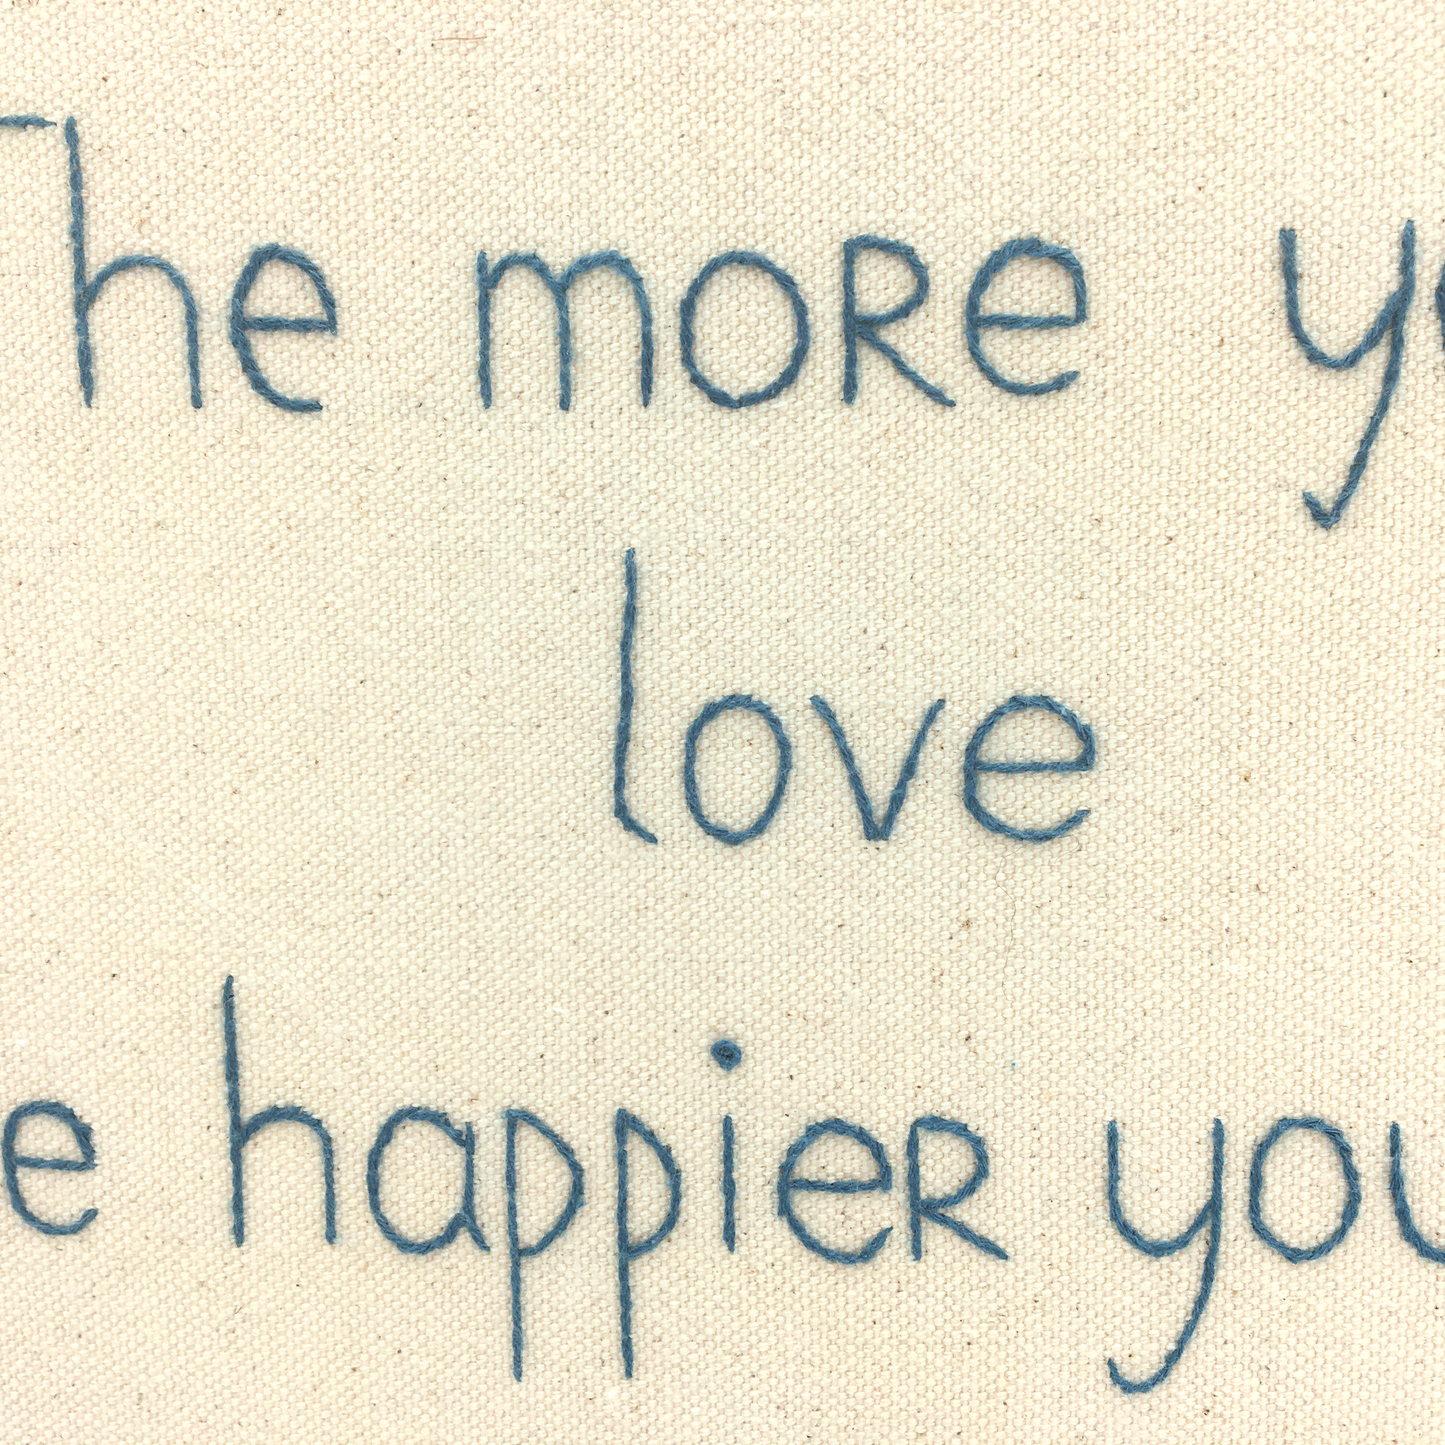 The more yo
love
e happier you